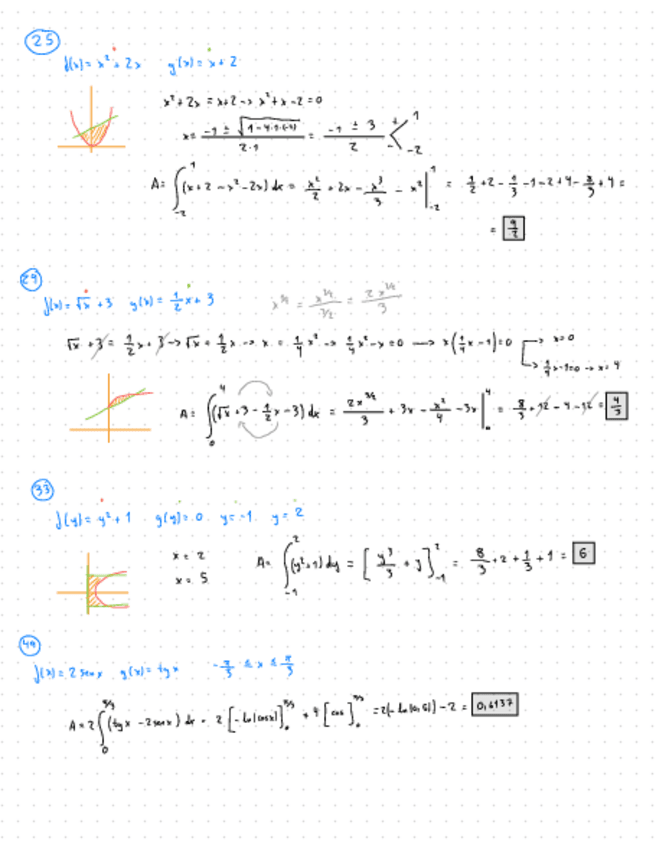 25
f(x) = x² + 2x g(x) = x + 2
x² + 2x = x+2 -> x² + x - 2 = 0
x = (-1 ± √(1-4·1·(-2)))/(2·1) = (-1 ± 3)/2 < + 1
- -2
A = ∫_{-2}^{1} (x+2 - x² - 2x) dx = x²/2 + 2x - x³/3 - x² |_{-2}^{1} = 1/2 + 2 - 1/3 - 1 - 2 + 4 - 8/3 + 4 =
= 9/2
29
f(x) = √x + 3 g(x) = 1/2 x + 3 x^{3/2} = x^{3/2}/(3/2) = 2x^{3/2}/3
√x + 3 = 1/2 x + 3 -> √x = 1/2 x -> x = 1/4 x² -> 1/4 x² - x = 0 -> x(1/4 x - 1) = 0 -> x = 0
-> 1/4 x - 1 = 0 -> x = 4
A = ∫_0^4 (√x + 3 - 1/2 x - 3) dx = 2x^{3/2}/3 + 3x - x²/4 - 3x |_0^4 = 8/3 + 12 - 4 - 12 = 4/3
33
f(y) = y² + 1 g(y) = 0 y = -1 y = 2
x = 2
x = 5
A = ∫_{-1}^{2} (y² + 1) dy = [y³/3 + y]_{-1}^{2} = 8/3 + 2 + 1/3 + 1 = 6
f(x) = 2 sen x g(x) = tg x -π/3 ≤ x ≤ π/3
A = 2 ∫_0^{π/3} (tg x - 2 sen x) dx = 2 [-ln|cos x|]_0^{π/3} + 4 [cos]_0^{π/3} = 2(-ln|0,5|) - 2 = 0,6137